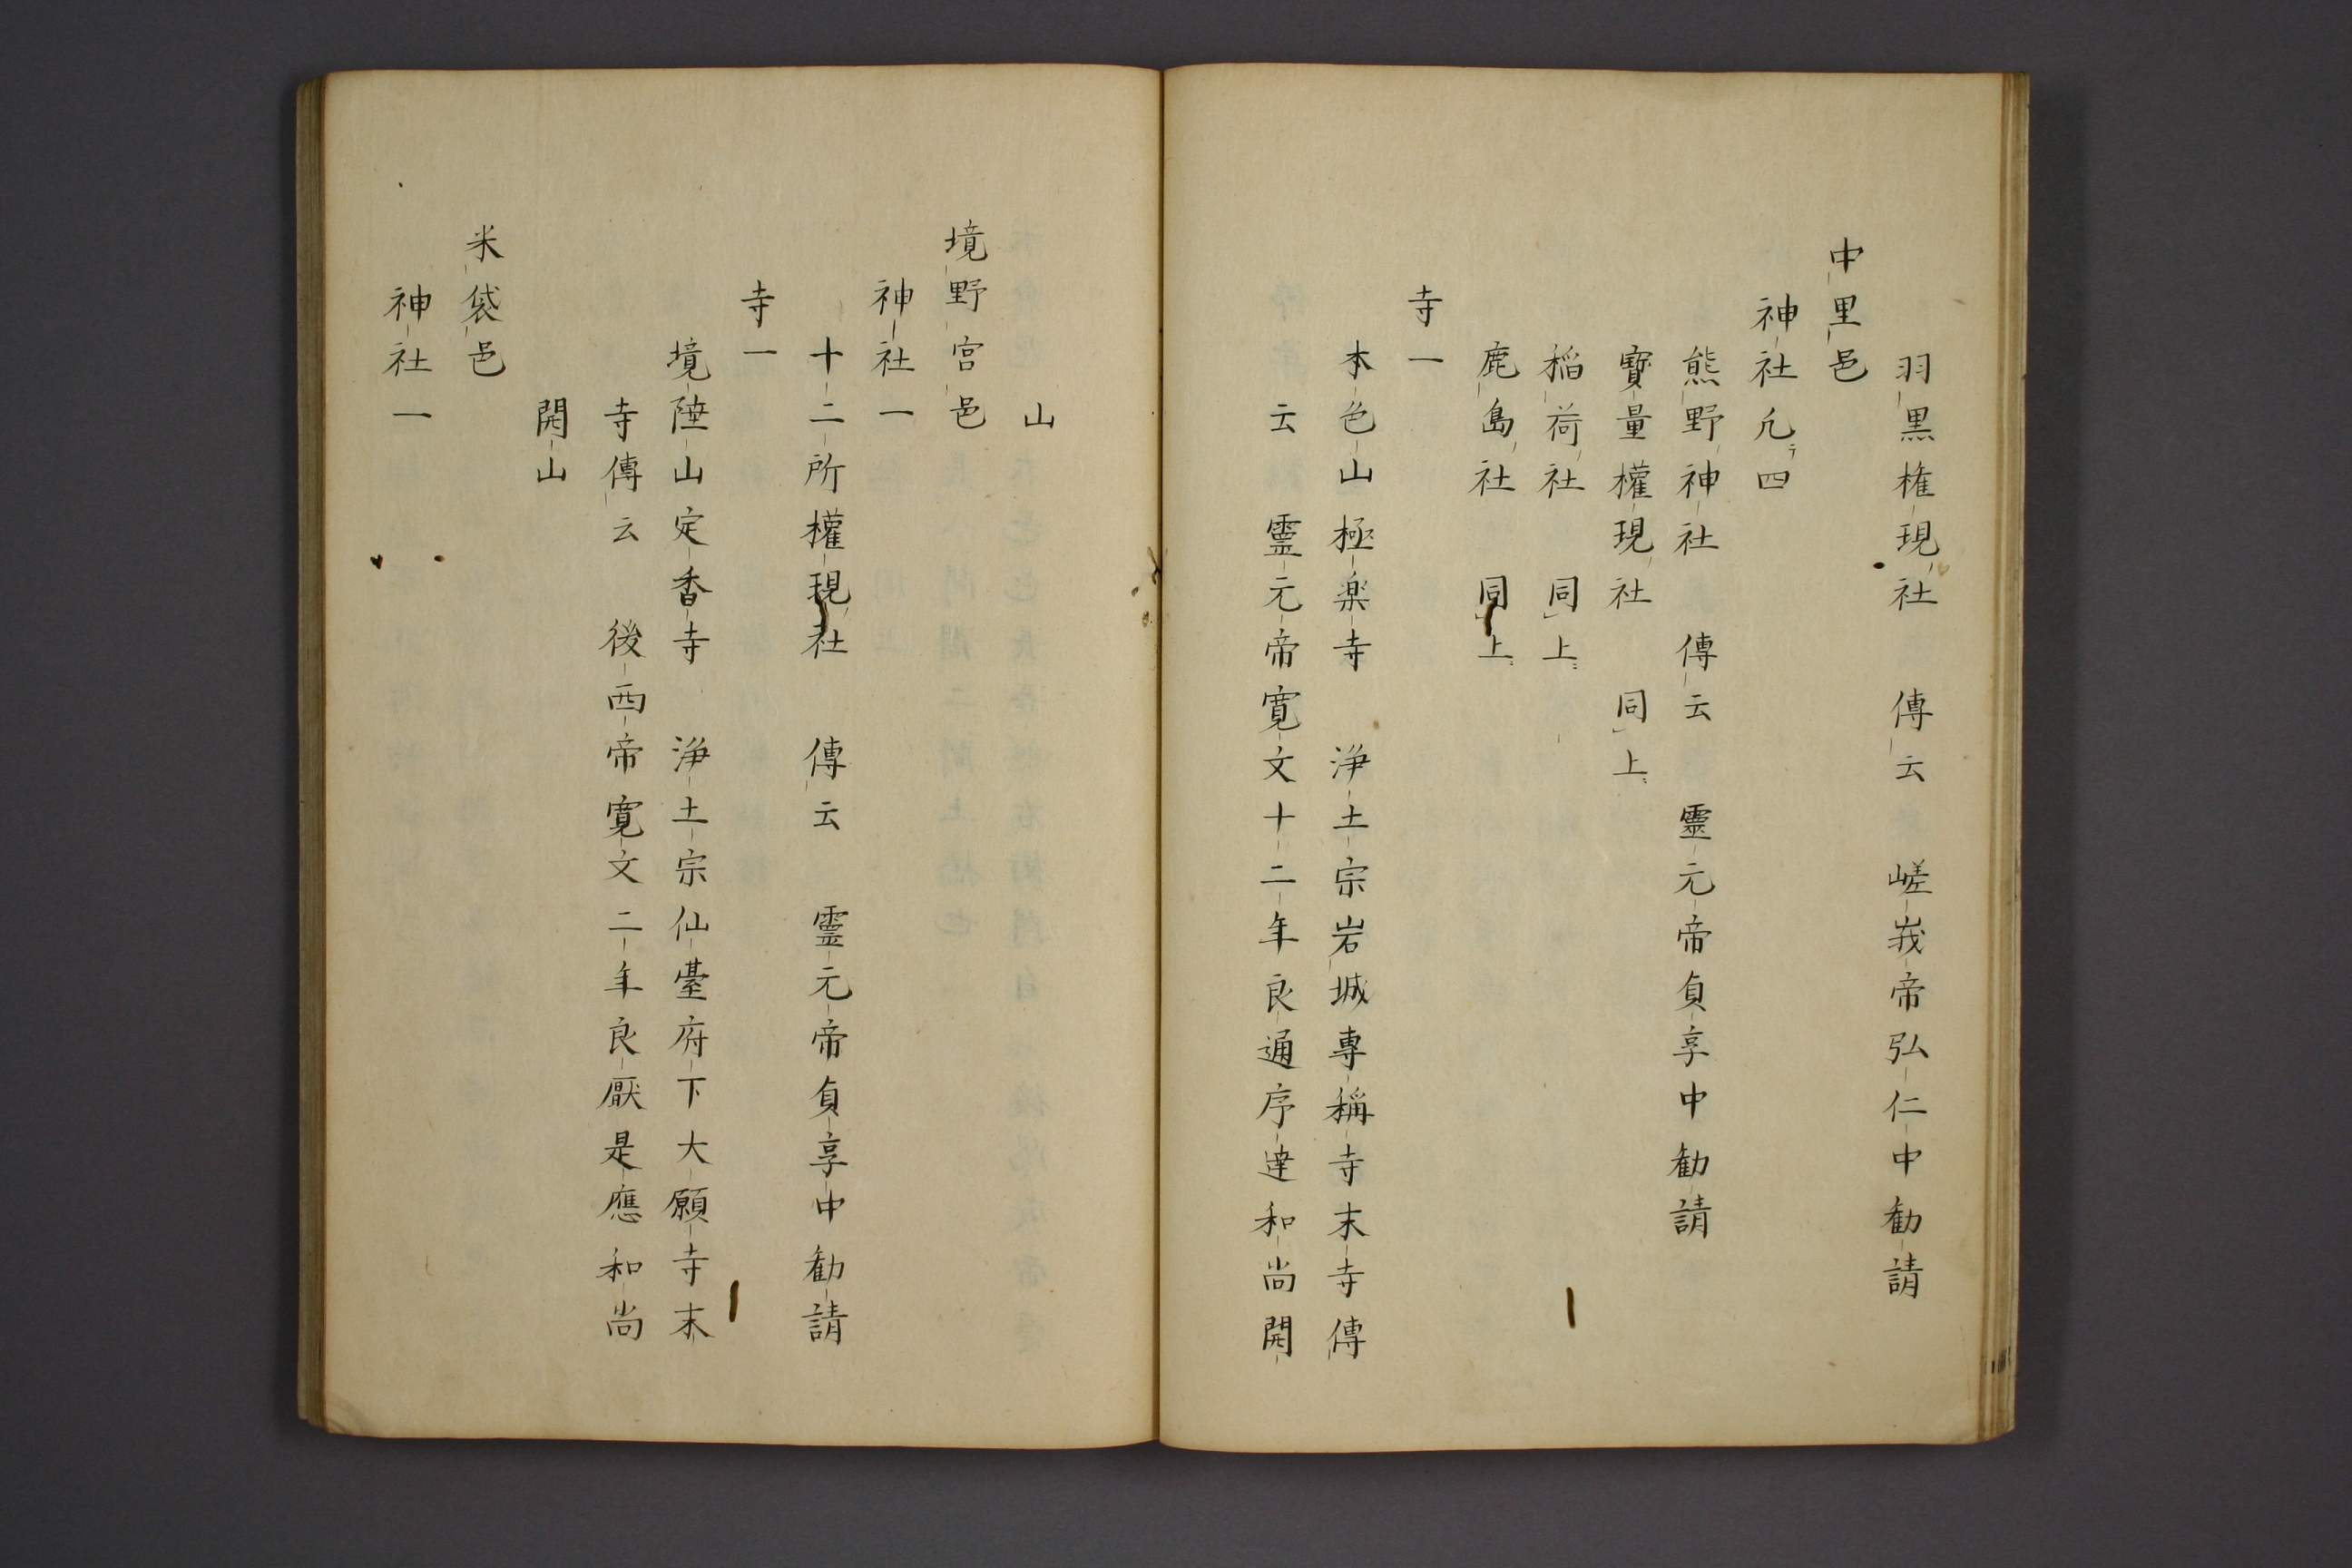 羽黒権現社　傳云　嵯峩帝弘仁中勧請
中里邑
神社凢四
熊野神社　傳云　靈元帝貞享中勧請
寶量權現社　同上
稲荷社　同上
鹿島社　同上
寺一
本色山極楽寺　浄土宗岩城專稱寺末寺傳
云　霊元帝寛文十二年良通序達和尚開
山
境野宮邑
神社一
十二所權現社　傳云　霊元帝貞享中勧請
寺一
境陸山定香寺　浄土宗仙臺府下大願寺末
寺傳云　後西帝寛文二年良厭是應和尚
開山
米袋邑
神社一